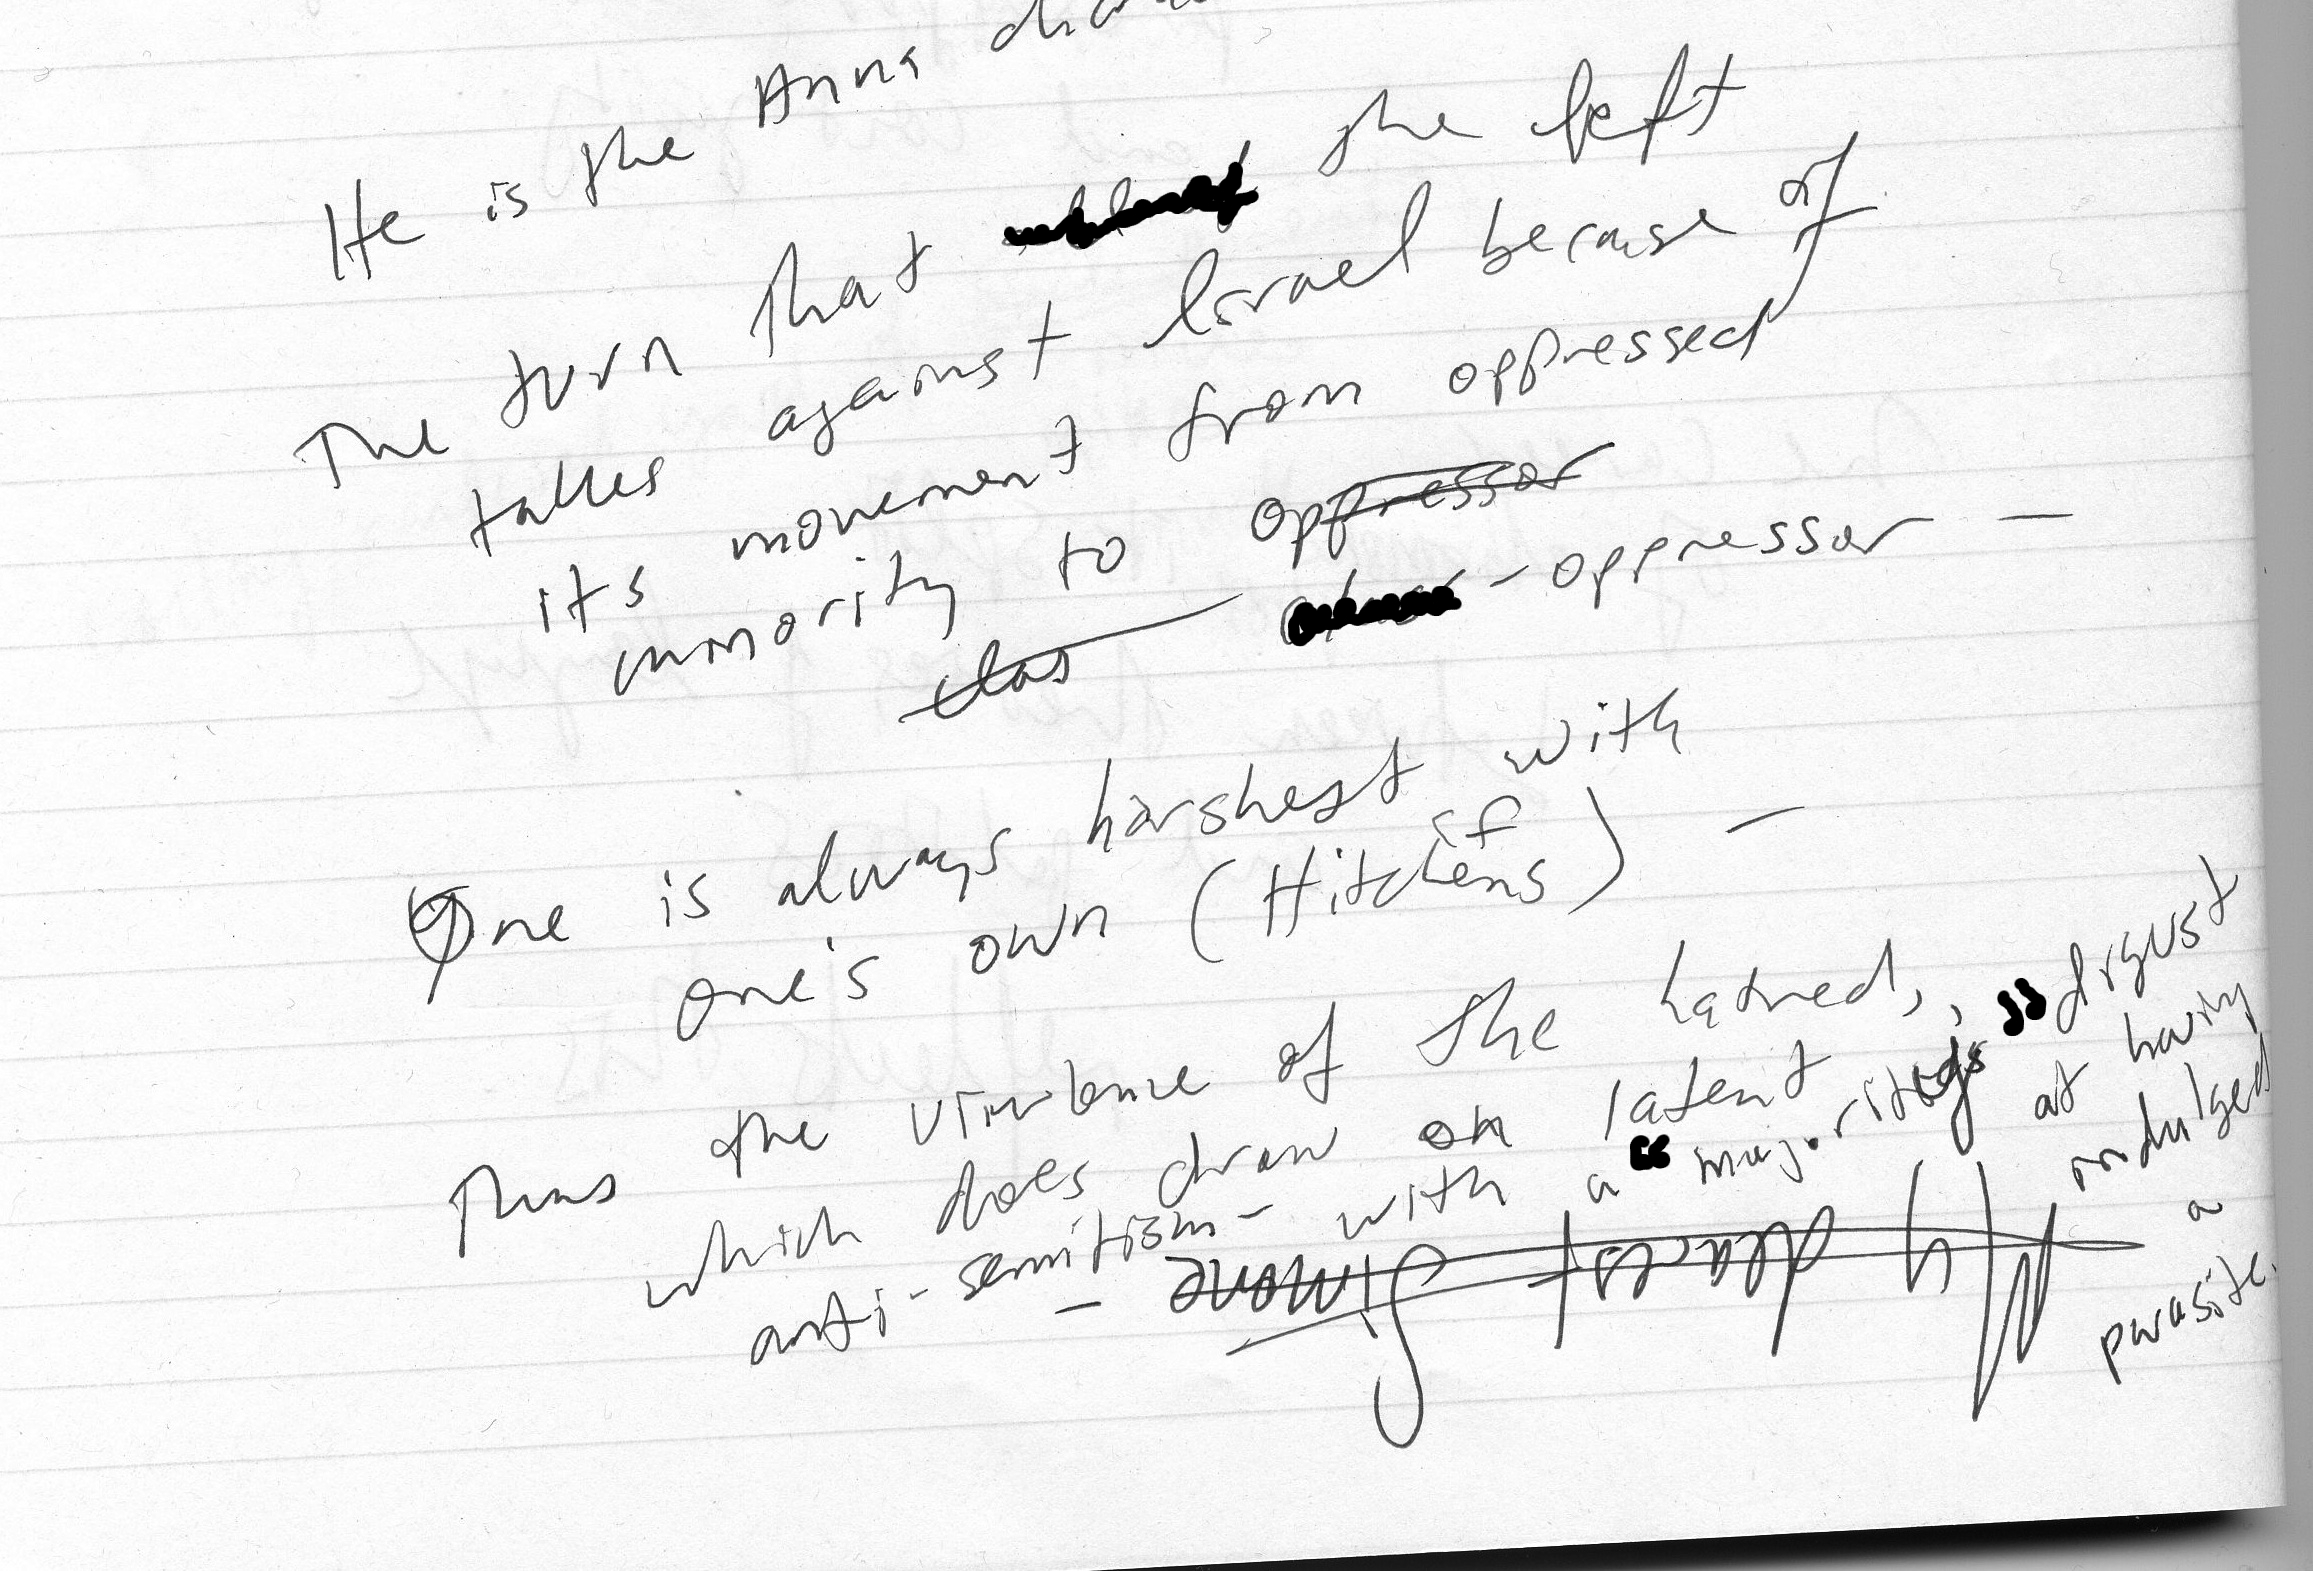 He is the Anna
The turn that the left
takes against Israel because of
its movement from oppressed
minority to oppressor
- oppressor -
One is always harshest with
one's own (cf Hitchens) -
Thus the virulence of the hatred,
which does draw on latent
anti-semitism - with a "majority's" disgust
at having
indulged
a
parasite.
My dearest Simone -